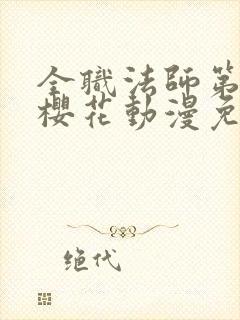 全職法師第
櫻花動漫免
绝代